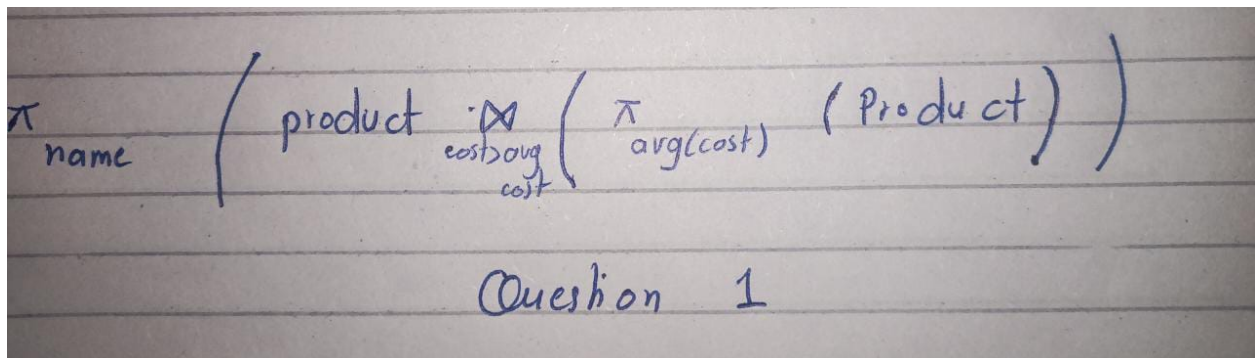 π name ( product ⋈ cost>avg cost ( π avg(cost) (Product) ) )
Question 1